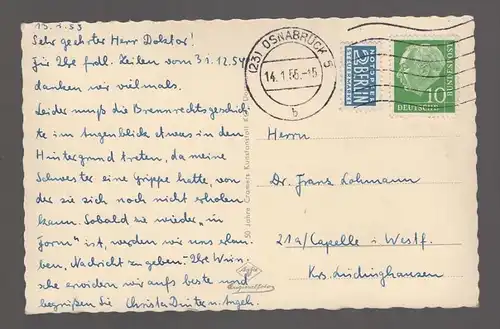 13.1.55
Sehr geehrter Herr Doktor!
Für Ihre frdl. Zeilen vom 31.12.54
danken wir vielmals.
Leider muß die Brennrechtsgeschich-
te im Augenblick etwas in den
Hintergrund treten, da meine
Schwester eine Grippe hatte, von
der sie sich noch nicht erholen
kann. Sobald sie wieder „in
Form" ist, werden wir uns erlau-
ben, Nachricht zu geben. Ihre Wün-
sche erwidern wir aufs beste und
begrüßen Sie Christa
(23) OSNABRÜCK 5
14.1.55.-15
b
NOTOPFER
2 BERLIN
STEUERMARKE
10
DEUTSCHE
BUNDESPOST
50 Jahre Cramers Kunstanstalt KG
Herrn
Dr. Franz Lohmann
21a/Capelle i. Westf.
Krs. Lüdinghausen